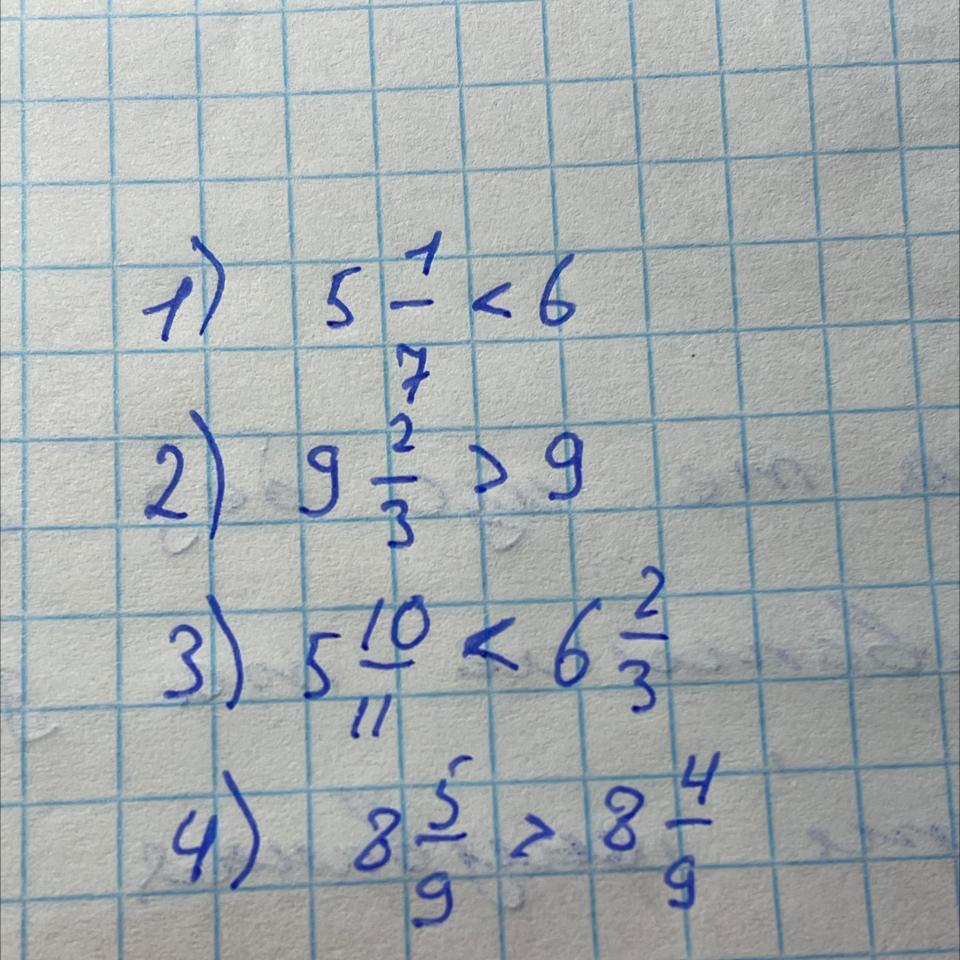 1) 5 1/7 < 6
2) 9 2/3 > 9
3) 5 10/11 < 6 2/3
4) 8 5/9 > 8 4/9